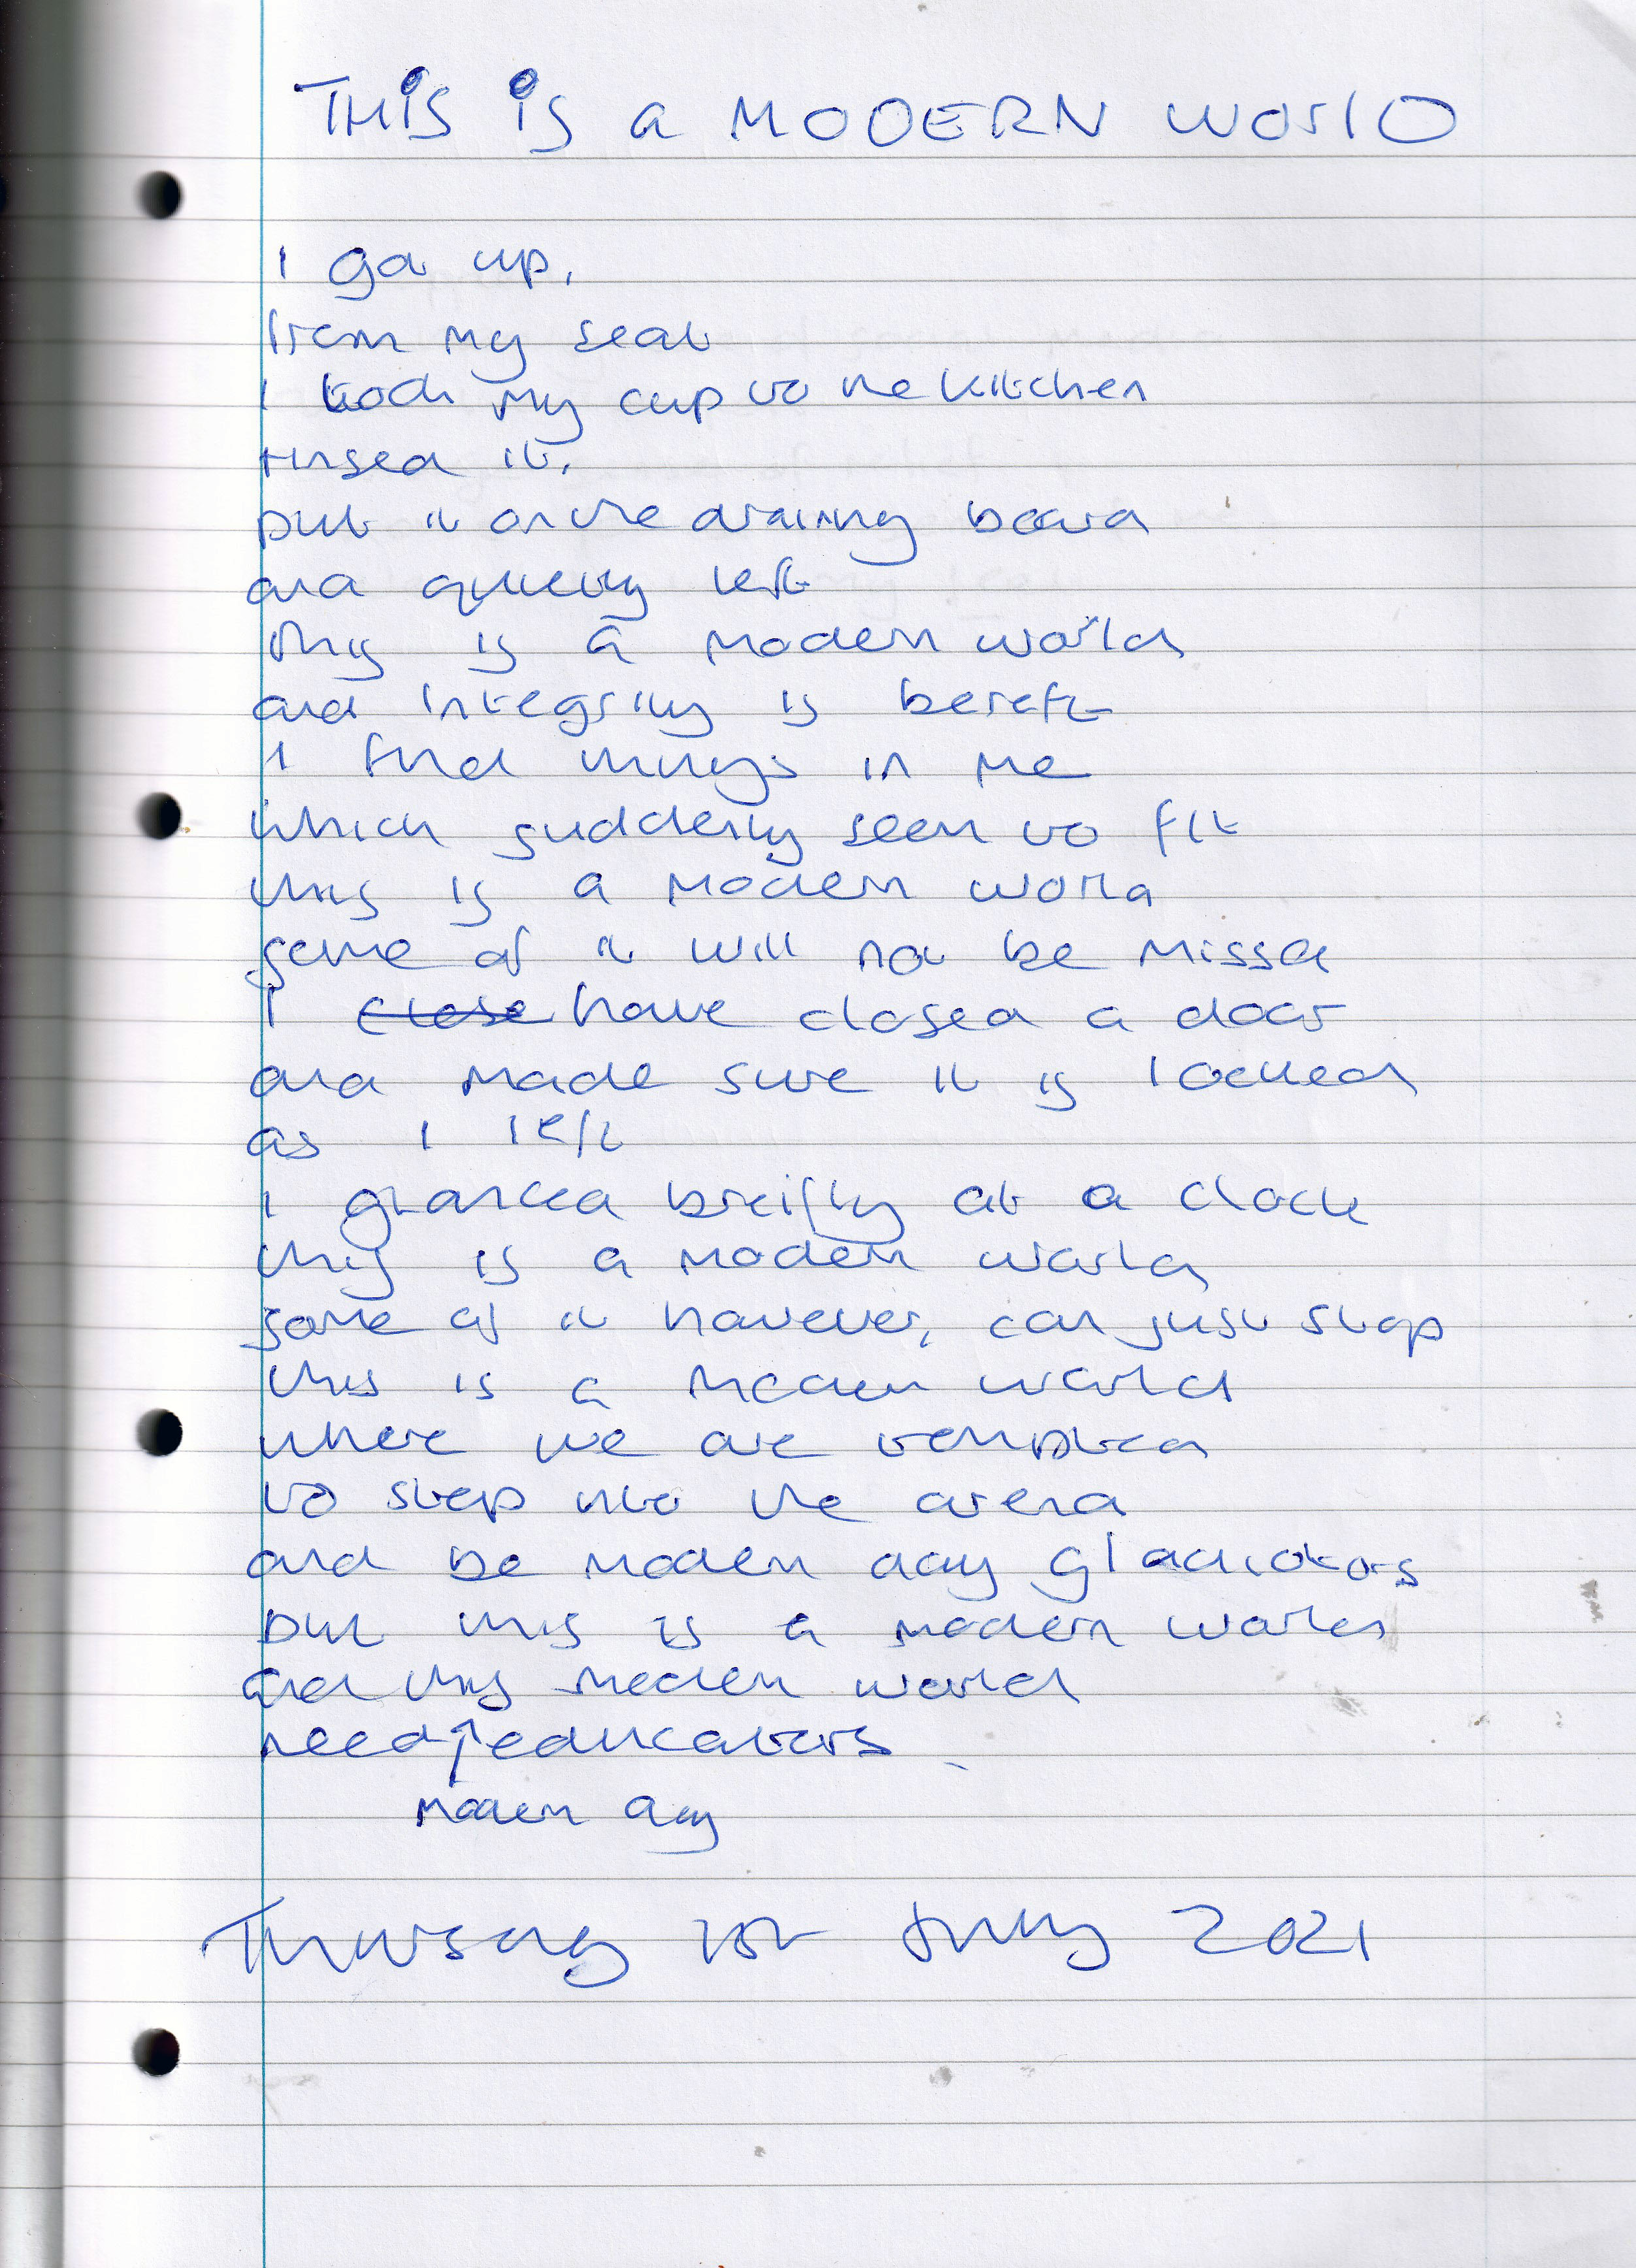 THIS is a MODERN WORLD
I got up,
from my seat
I took my cup to the kitchen
rinsed it,
put it on the draining board
and quietly left
this is a modern world
and integrity is bereft
I find things in me
which suddenly seem to fit
this is a modern world
some of it will not be missed
I close have closed a door
and made sure it is locked
as I left
I glanced breifly at a clock
this is a modern world
some of it however, can just stop
this is a modern world
where we are tempted
to step into the arena
and be modern day gladiators
but this is a modern world
and this modern world
needs educators
modern day
Thursday 1st July 2021